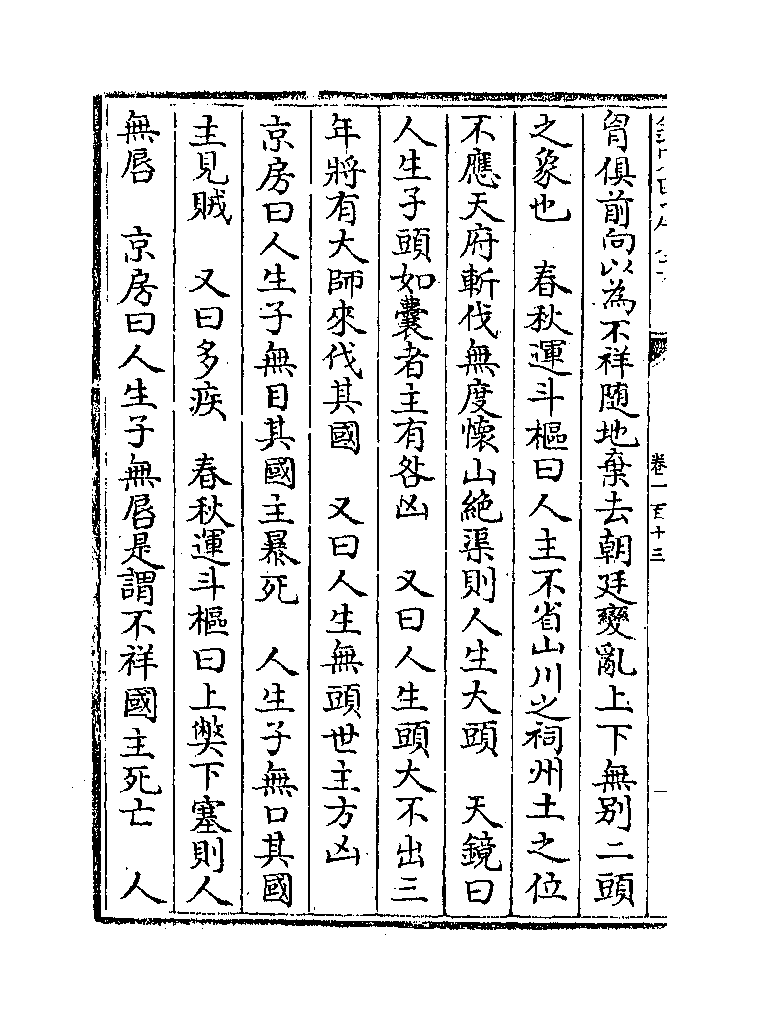 卷一百十三
胷俱前向以為不祥隨地棄去朝廷變亂上下無别二頭
之象也　春秋運斗樞曰人主不省山川之祠州土之位
不應天府斬伐無度懷山絶渠則人生大頭　天鏡曰
人生子頭如囊者主有咎凶　又曰人生頭大不出三
年將有大師來伐其國　又曰人生無頭世主方凶
京房曰人生子無目其國主暴死　人生子無口其國
主見賊　又曰多疾　春秋運斗樞曰上獘下塞則人
無唇　京房曰人生子無唇是謂不祥國主死亡　人